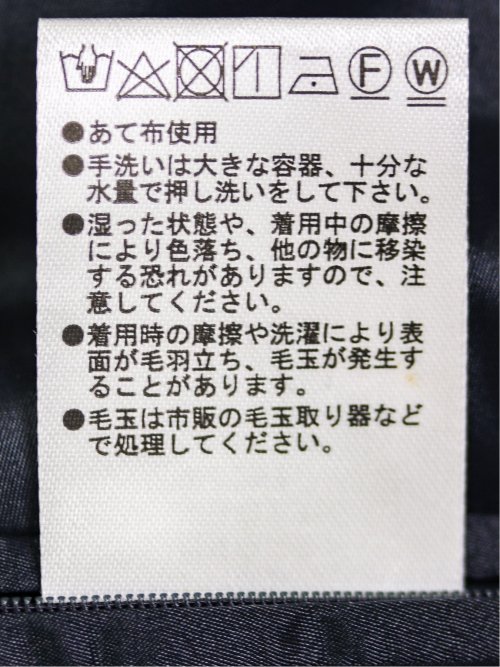 F W
●あて布使用
●手洗いは大きな容器、十分な
水量で押し洗いをして下さい。
●湿った状態や、着用中の摩擦
により色落ち、他の物に移染
する恐れがありますので、注
意してください。
●着用時の摩擦や洗濯により表
面が毛羽立ち、毛玉が発生す
ることがあります。
●毛玉は市販の毛玉取り器など
で処理してください。